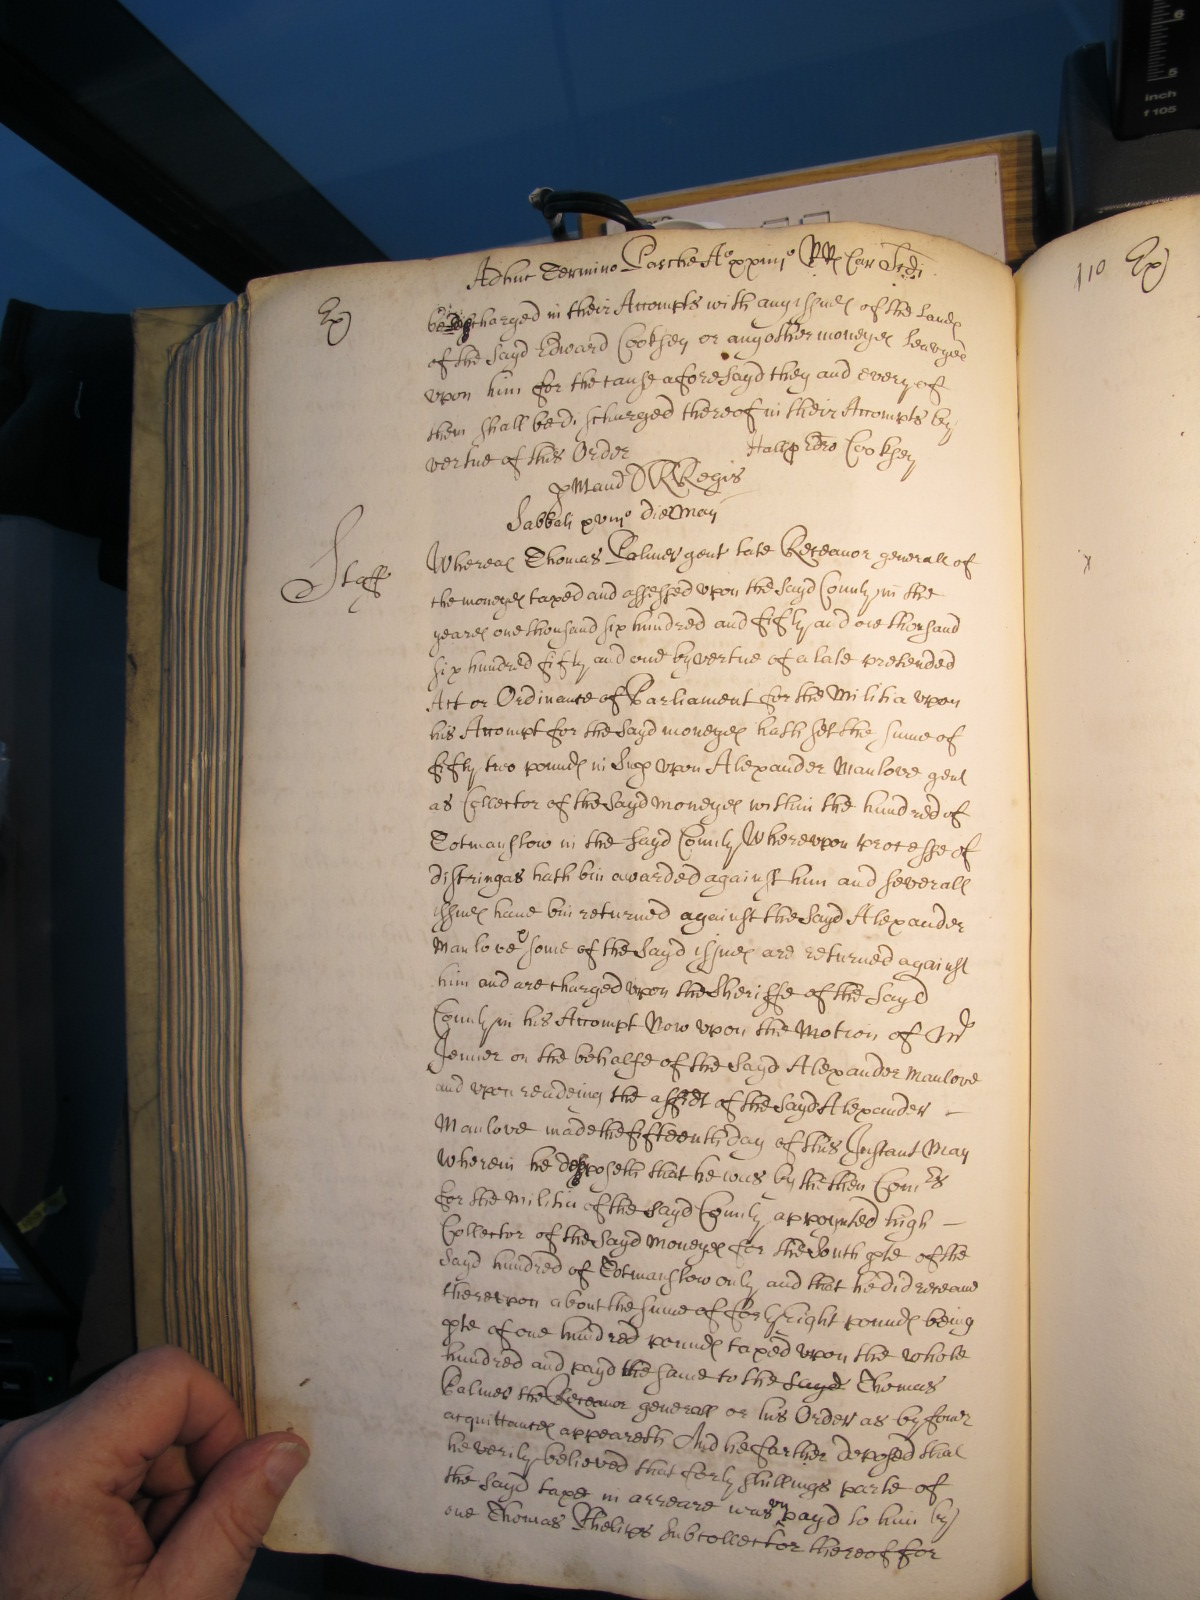 Adhuc Termino Pasche A° xxiiij° RR Car Scdi
Ex
be discharged in their Accompts with any issues of the Lands
of the Sayd Edward Cooksey or any other moneyes leavyed
upon him for the cause aforesayd they and every of
them shall be discharged thereof in their Accompts by
vertue of this Order
Edro Cooksey
p Mand Regis
Sabbati xviij° die May
Staff
Whereas Thomas Palmer gent late Receavor generall of
the moneyes taxed and assessed upon the Sayd County in the
yeares one thousand six hundred and fifty and one thousand
six hundred fifty and one by vertue of a late pretended
Act or Ordinance of Parliament for the Militia upon
his Accompt for the Sayd moneyes hath set the sume of
fifty two pounds in Sup upon Alexander Manlove gent
as Collector of the Sayd moneyes within the hundred of
Totmanslow in the Sayd County Whereupon processe of
distringas hath bin awarded against him and severall
issues have bin returned against the Sayd Alexander
Manlove some of the Sayd issues are returned against
him and are charged upon the Sheriffe of the Sayd
County in his Accompt Now upon the Motion of Mr
Jenner on the behalfe of the Sayd Alexander Manlove
and upon readeing the affidt of the Sayd Alexander
Manlove made the fifteenth day of this Instant May
wherein he deposeth that he was by the then Comrs
for the Militia of the Sayd County appoynted high
Collector of the Sayd Moneyes for the South pte of the
Sayd hundred of Totmanslow only and that he did receave
thereupon about the sume of forty Eight pounds being
pte of one hundred pounds taxed upon the whole
hundred and payd the same to the Sayd Thomas
Palmer the Receavor generall or his Order as by fower
acquittances appeareth And he farther deposed that
he verily believed that forty shillings parte of
the Sayd taxe in arreare was unpayd to him by
one Thomas Phelips Subcollector thereof for
110 Ex
x
inch
f 105
5
6